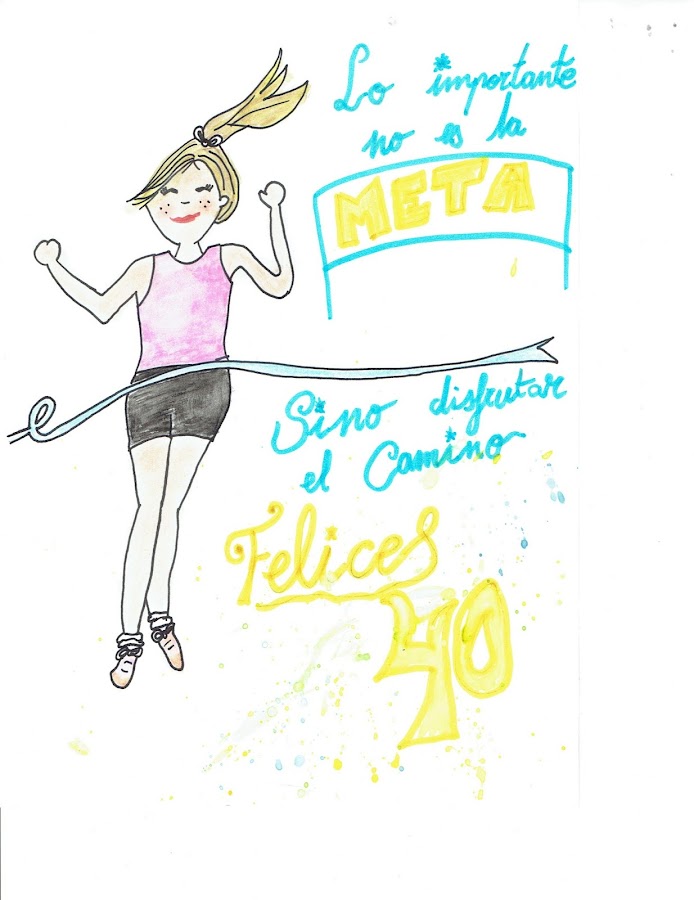 Lo importante
no es la
META
Sino disfrutar
el Camino
Felices
40